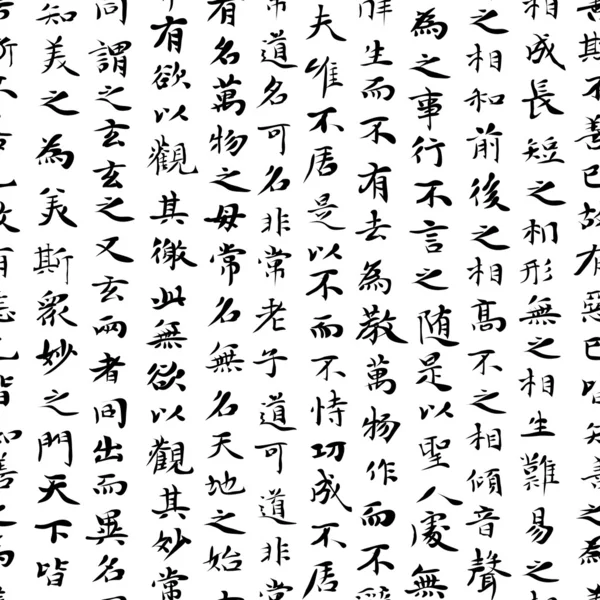 善斯不善已故有惡已皆知善之為
相成長短之相形無之相生難易之
之相和前後之相高不之相傾音聲
為之事行不言之随是以聖人處無
生而不有去為教萬物作而不辭
夫唯不居是以不而不恃功成不居
常道名可名非常老子道可道非常
有名萬物之母常名無名天地之始
有欲以觀其徼此無欲以觀其妙常
同謂之玄玄之又玄兩者同出而異名
知美之為美斯衆妙之門天下皆